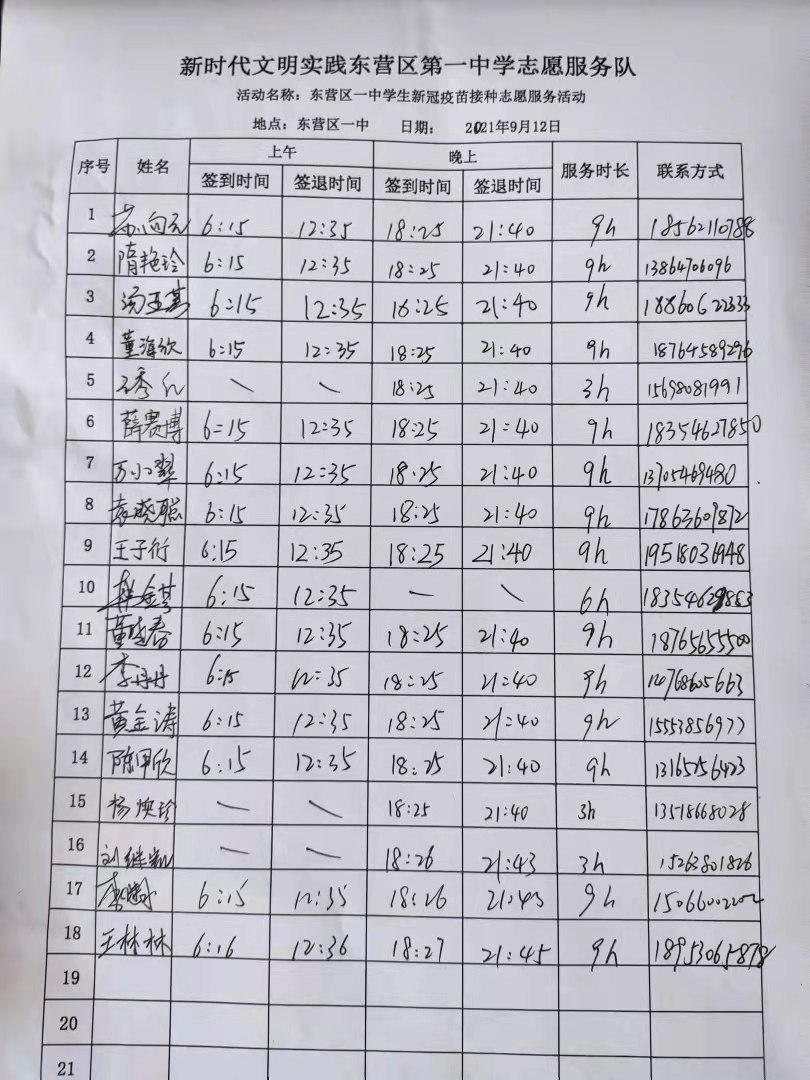 新时代文明实践东营区第一中学志愿服务队
活动名称：东营区一中学生新冠疫苗接种志愿服务活动
地点：东营区一中 日期： 2021年9月12日
序号 姓名 上午 晚上 服务时长 联系方式
签到时间 签退时间 签到时间 签退时间
1 6:15 12:35 18:25 21:40 9h 18562110788
2 隋艳玲 6:15 12:35 18:25 21:40 9h 13864706096
3 6:15 12:35 18:25 21:40 9h 18860622333
4 董海欣 6:15 12:35 18:25 21:40 9h 18764589296
5 — — 18:25 21:40 3h 15698081991
6 薛赛博 6:15 12:35 18:25 21:40 9h 18354627850
7 万小翠 6:15 12:35 18:25 21:40 9h 13705469480
8 6:15 12:35 18:25 21:40 9h 17863609872
9 王子衍 6:15 12:35 18:25 21:40 9h 19518036948
10 6:15 12:35 — — 6h
11 6:15 12:35 18:25 21:40 9h 18765655500
12 李丹丹 6:15 12:35 18:25 21:40 9h
13 黄金涛 6:15 12:35 18:25 21:40 9h 15553856977
14 6:15 12:35 18:25 21:40 9h 13165256423
15 — — 18:25 21:40 3h 13518668028
16 刘继凯 — — 18:26 21:43 3h 15263801826
17 6:15 12:35 18:26 21:43 9h 15066002202
18 王林林 6:16 12:36 18:27 21:45 9h 18953065878
19
20
21